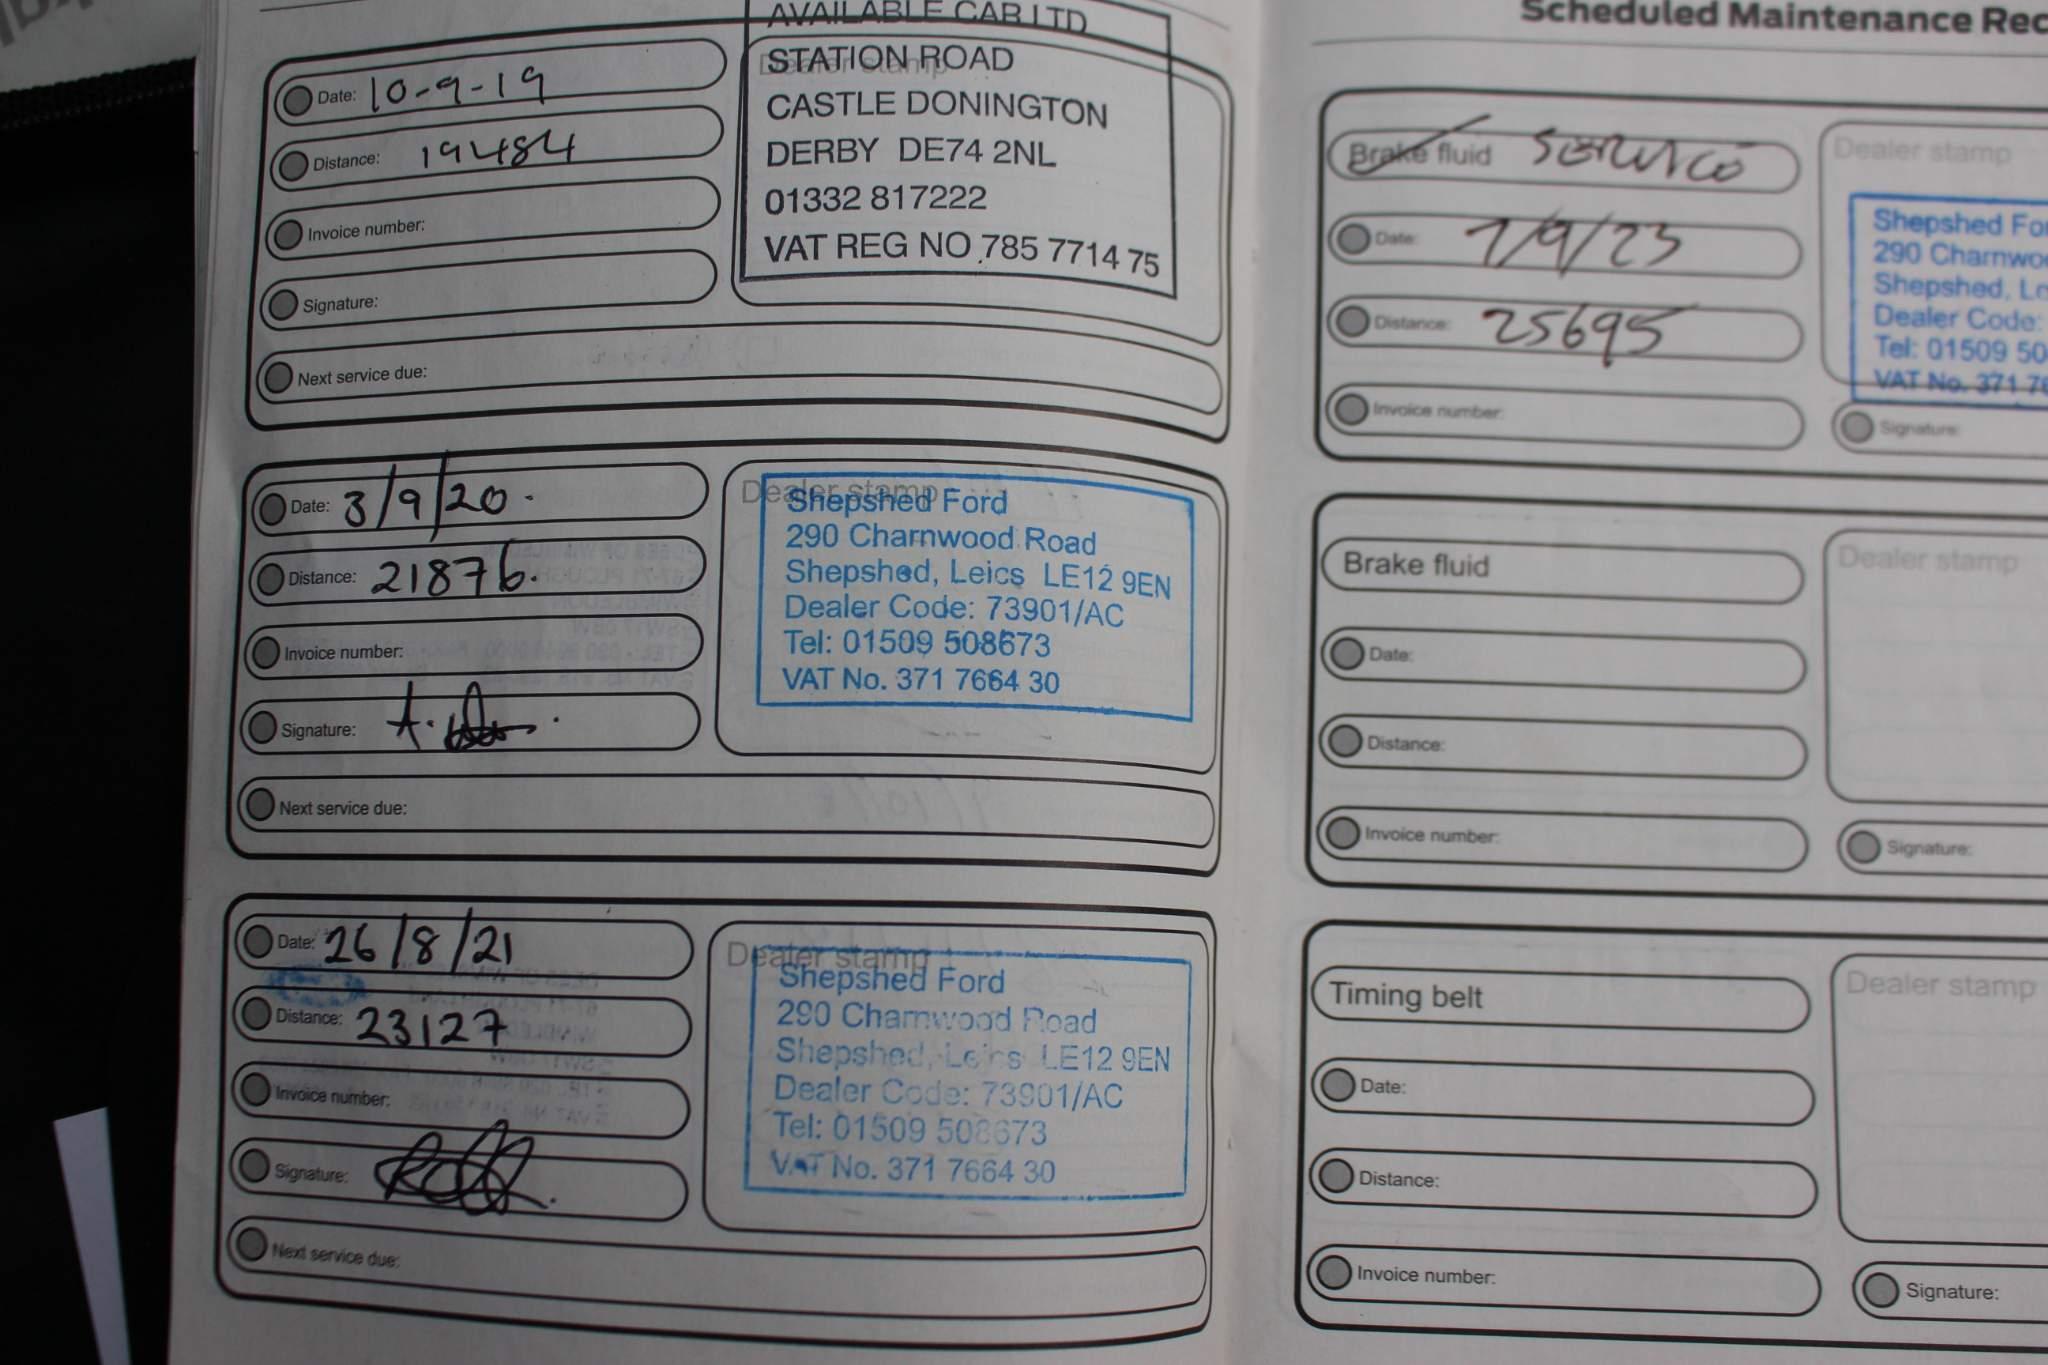 Date: 10-9-19
Distance: 19484
Invoice number:
Signature:
Next service due:
Dealer stamp
AVAILABLE CAR LTD
STATION ROAD
CASTLE DONINGTON
DERBY DE74 2NL
01332 817222
VAT REG NO 785 7714 75
Date: 3/9/20.
Distance: 21876.
Invoice number:
Signature:
Next service due:
Dealer stamp
Shepshed Ford
290 Charnwood Road
Shepshed, Leics LE12 9EN
Dealer Code: 73901/AC
Tel: 01509 508673
VAT No. 371 7664 30
Date: 26/8/21
Distance: 23127
Invoice number:
Signature:
Next service due:
Dealer stamp
Shepshed Ford
290 Charnwood Road
Shepshed, Leics LE12 9EN
Dealer Code: 73901/AC
Tel: 01509 508673
VAT No. 371 7664 30
Scheduled Maintenance Rec
Brake fluid SERVICE
Date: 7/9/23
Distance: 25695
Invoice number:
Dealer stamp
Shepshed Fo
290 Charnwo
Shepshed, Le
Dealer Code:
Tel: 01509 50
VAT No. 371 76
Signature:
Brake fluid
Date:
Distance:
Invoice number:
Dealer stamp
Signature:
Timing belt
Date:
Distance:
Invoice number:
Dealer stamp
Signature: